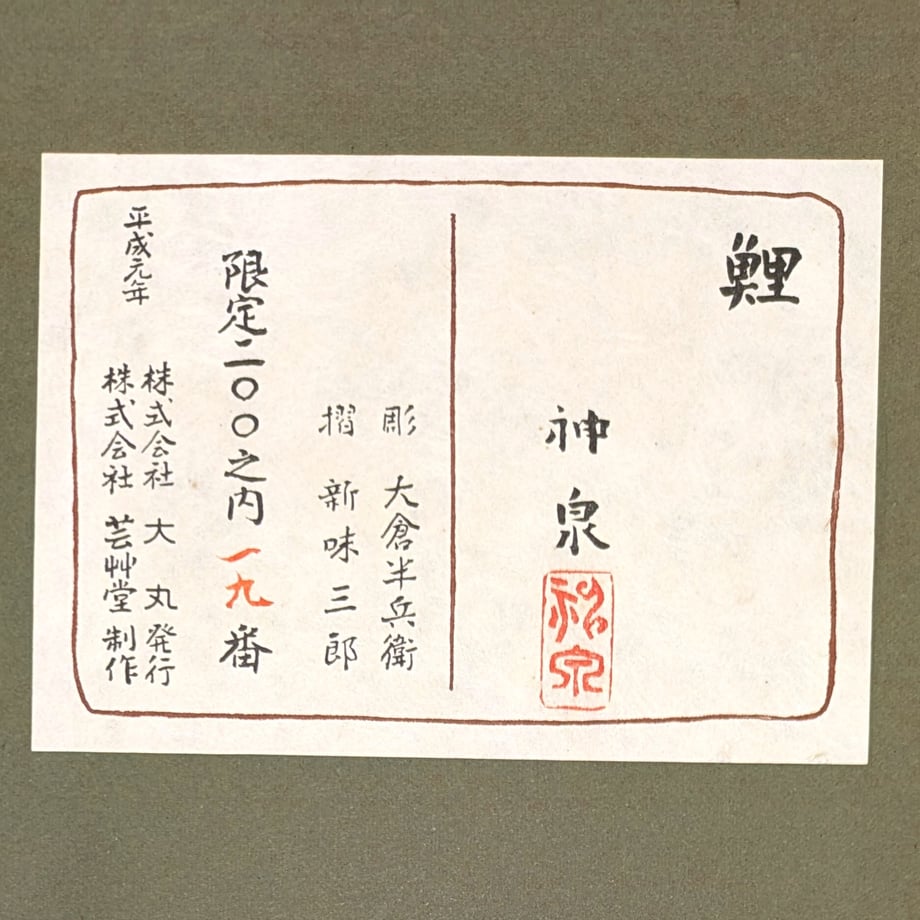 鯉
神泉
神泉
彫 大倉半兵衛
摺 新味三郎
限定二〇〇之内 一九番
平成元年
株式会社 大丸 発行
株式会社 芸艸堂 制作